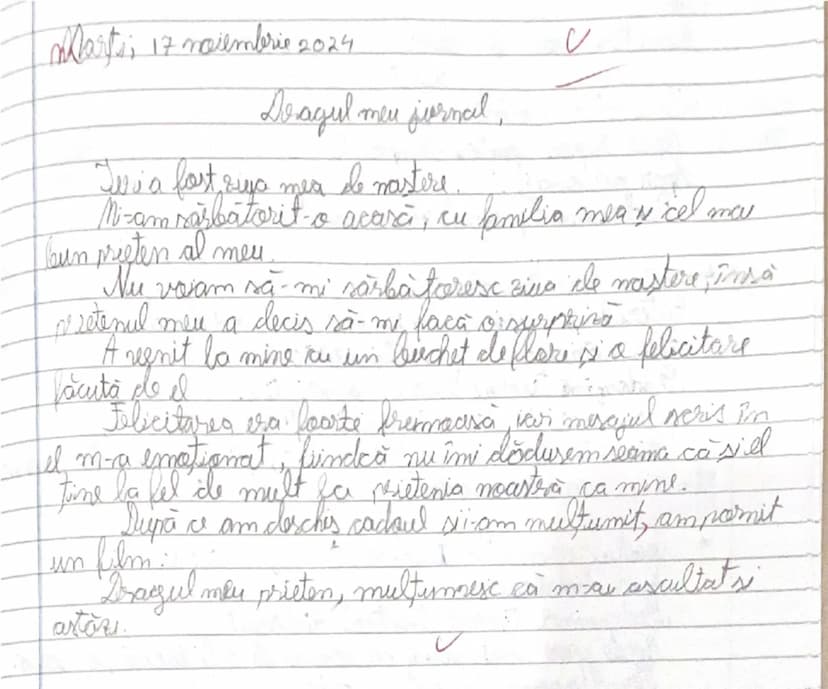 Marți, 17 noiembrie 2024
Dragul meu jurnal,
Ieri a fost ziua mea de naștere.
Mi-am sărbătorit-o acasă, cu familia mea și cel mai
bun prieten al meu.
Nu voiam să-mi sărbătoresc ziua de naștere, însă
prietenul meu a decis să-mi facă o surpriză
A venit la mine cu un buchet de flori și o felicitare
făcută de el
Felicitarea era foarte frumoasă, iar mesajul scris în
el m-a emoționat, fiindcă nu îmi dădusem seama că și el
ține la fel de mult la prietenia noastră ca mine.
După ce am deschis cadoul și i-am mulțumit, am pornit
un film.
Dragul meu prieten, mulțumesc că m-ai ascultat și
astăzi.